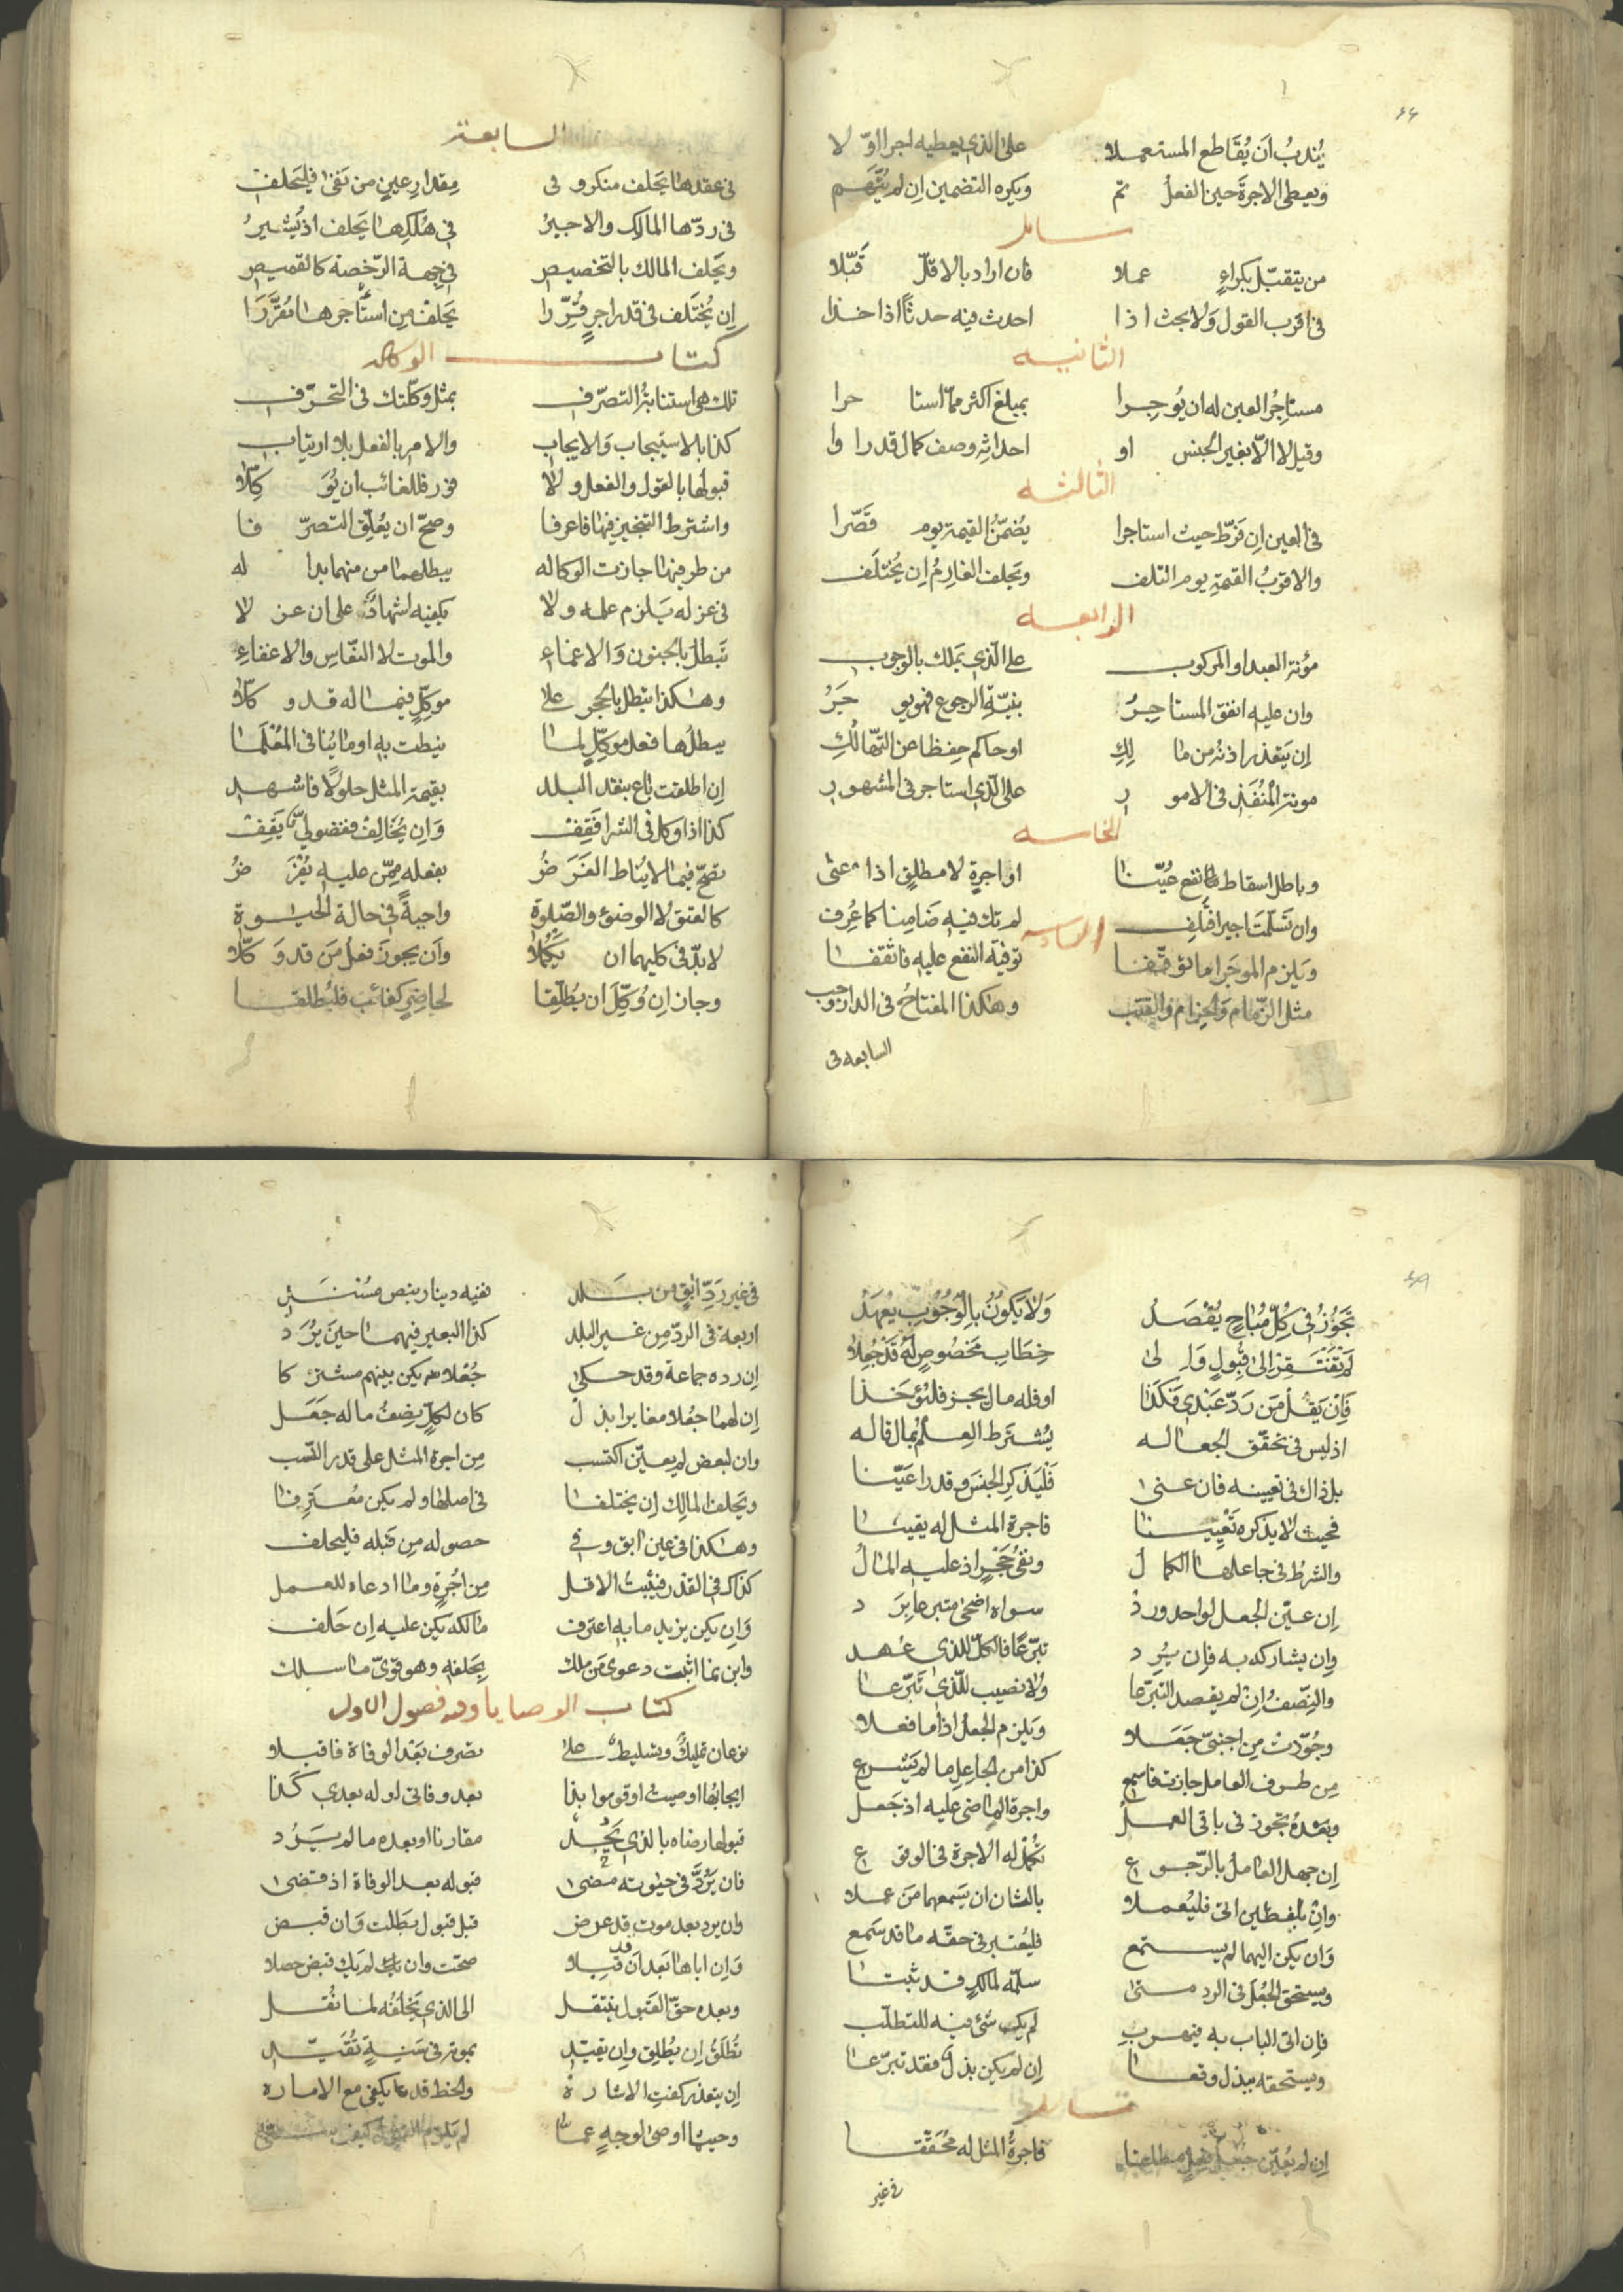 يُندبُ ان يُقَاطع المستعملا على الذي يعطيه اجرا اوّلا
ويعطى الاجرةَ حين الفعلُ تم ويكره التضمين ان لم يُتَّهَم
مسائل
من يتقبّل بكراءٍ عملا فان اراد بالاقلّ قَبّلا
فى اقرب القول ولا بحث اذا احدث فيه حدثاً اذا خذا
الثانيه
مستاجِرُ العين له ان يُوجِرا بمبلغ اكثر ممّا استاجرا
وقيل لا الّا بغير الجنس او احداثِه وصف كمال قدرا وا
الثالثه
فى العين ان فَرّط حيث استاجرا يُضمَّنُ القيمة يوم قَصّرا
والاقربُ القيمةِ يوم التلف ويَحلف الغارِمُ ان يُختلَف
الرابعه
مؤنة العبد او المركوب على الّذى يَملك بالوجوب
وان عليه انفق المستاجِرُ بنيّة الرجوع فهو يوجَرُ
ان يَتعذر اذنُه من مالِكِ او حاكم حِفظا عن التهالُكِ
مونة المُنْفَذِ فى الامور على الّذى استاجر فى المشهور
الخامسه
وباطل اسقاط مانفع عُيّنا او اجرةٍ لا مطلقٍ اذا عنى
وان تسلّمتَ اجيرا فتَلِف لم تك فيه ضَامِنا كما عُرِف
السادسه
ويَلزم الموجَر ما توقّفا توفية النفع عليه فاثقفا
مثل الزّمام والحِزام والقتَب وهكذا المفتاحُ فى الدار وجب
السابعه فى
السابعة
فى عقدها يَحلف منكر وفى مِقدار عينٍ من نفى فليَحلف
فى ردّها المالك والاجيرُ فى هُلكِها يَحلف اذ يُشيرُ
ويَحلف المالك بالتخصيص فى جهة الرّخصة كالقميص
ان يُختَلف فى قدر اجرٍ قُرِّرا يَحلف مِن استاجرها مُقَرَّرَا
كتاب الوكاله
تلك هى استنابةُ التصرّف بمثل وكّلتك فى التحرّف
كذا بالاستيجاب والايجاب والامر بالفعل بلا ارتياب
قبولُها بالقول والفعل ولا فور فللغائب ان يُوَكِّلا
واشترط التنجيز فيها فاعرفا وصحّ ان يُعلّق التصرّفا
من طرفيها جازت الوكاله يبطلها من منهما بدا له
فى عزله يَلزم علمه ولا يكفيه اشهادٌ على ان عزلا
تَبطل بالجنون والاغماءِ والموت لا النعّاسِ والاغفاءِ
وهكذا تبطل بالحجر على موكّلٍ فيما له قد وكّلا
يبطلُها فعل موكّلٍ لما نيطت به او ما يُنافى المُعْلَما
ان اطلقت باع بنقد البلد بقيمة المثل حلولاً فاشهد
كذا اذا وكل فى الشرا فَقِف وان يُخَالِف ففضولىٌّ يَقِف
تصحّ فيما لا يُناط الغَرَضُ بفعله مِمّن عليه يُفْرَضُ
كالعتق لا الوضوء والصّلوة واجبةً فى حالة الحيوة
لابدّ فى كليهما ان يَكْمُلا وان يجوزَ فعلُ مَن قد وَكّلا
وجاز ان وُكِّلَ ان يُطلّقا لحاضِرٍ كغائب فليُطلقا
تَجُوزُ فى كُلّ مُبَاحٍ يُقْصَدُ وَلا يَكُونُ بِالْوُجُوبِ يُعْهَدُ
لَم تَفْتَقِر الى قبُولٍ وَالى خِطَاب مَخصُوصٍ لَهُ قد جُعِلا
فَاِنْ يَقُل مَن رَدّ عَبْدِى فَكَذَا او فله مال يجز فليُوْخَذا
اذ ليس فى تحقّق الجعاله يُشتَرط العِلمُ بمال قاله
بل ذاك فى تعيينه فان عنى فَلْيَذكر الجنسَ وقدرا عَيّنا
فحيث لا يذكره تَعْيِينا فاجرة المثل له يقينا
والشرطُ فى جاعلها الكمالُ ونفىُ حَجْرٍ اذ عليه المالُ
ان عيّن الجعل لواحد ورد سواه اضحى متبرعا يَرَد
وان يشاركه به فان يُرِد تبرّعًا فالكلّ للذى عُهد
والنِّصفُ ان لم يقصد التبرّعا ولا نصيب للّذى تبرّعا
وجُوّزت مِن اجنبىّ جَعَلا ويَلزم الجعلُ اذا ما فعلا
مِن طرف العامل جازت فاسمع كذا من الجاعِلِ ما لم يَشرعِ
وبَعْدهُ تجوز فى باقى العمل واجرة الماضى عليه اذ جَعَل
ان جهل العاملُ بالرّجوع تكمُل له الاجرة فى الوقوع
وان بلفظين اتى فليُعملا بالثان ان يَسمعهما مَن عملا
وَان يكن اليهما لم يستمع فليُعتبر فى حقّه ما قد سَمع
ويستحق الجُعْلَ فى الرد متى سلّمه لمالكٍ قد ثبتا
فان اتى الباب به فيهرب لم يك شئ فيه للتطلّب
ويستحقه ببذل وقعا ان لم يكن بذل فقد تبرّعا
مسائل
ان لم يُعيّن جُعلٌ مطلقا فاجرةُ المثل له مُحقّقا
فى غير
فى غير رَدِّ ابقٍ من بلد ففيه دينار بنصٍ مسند
اربعة فى الردّ مِن غير البلد كذا البعير فيهما حينَ يُرَد
ان رده جماعة وقد حكى جُعلا يكن بينهم مشتركا
ان لهما جُعلا مغايرا بذل كان لكلٍّ نِصفُ ما له جَعَل
وان لبعضٍ لم يعيّن اكتسب مِن اجرة المثل على قدر التّعب
ويَحلف المالِك ان يختلفا فى اصلها ولم يكن مُعتَرِفا
وهكذا فى عين ابق وفى حصوله مِن قبله فليحلف
كذاك فى القدر فيَثبتُ الاقل مِن اُجْرةٍ وما ادعاه للعمل
وان يكن يزيد ما به اعترف مالكه يكن عليه ان حَلف
وابن نما اثبت دعوى مَن ملك بحَلفه وهو قوىّ ما سلك
كتاب الوصايا وفيه فصول الاول
نوعان تمليكٌ وتسليطٌ على تصرف بَعْد الوفاة فاقبلا
ايجابُها اوصيت او قوموا بذا بعد وفاتى او له بعدى كَذَا
قبولها رضاه بالذى يَجُد مقارنا او بعده ما لم يَرُد
فان يَرُدَّ فى حيوته مضى قبوله بعد الوفاة اذ قضى
وان يرد بعد موت قد عرض قبل قبول بطلت وان قبض
وان اباها بَعد ان قد قبلا صحّت وان يك لم يك قبض حصلا
وبعده حقّ القبول ينتقل الى الذى يَخلُفه لما نُقل
تُطلَقُ ان يُطلِق وان يقيّد بموته فى سَنةٍ تُقَيَّد
ان يتعذر كفت الاشاره والخط قد يكفى مع الاماره
وحيثما اوصى لوجهٍ عمّا لم يَلزم القبول كيف